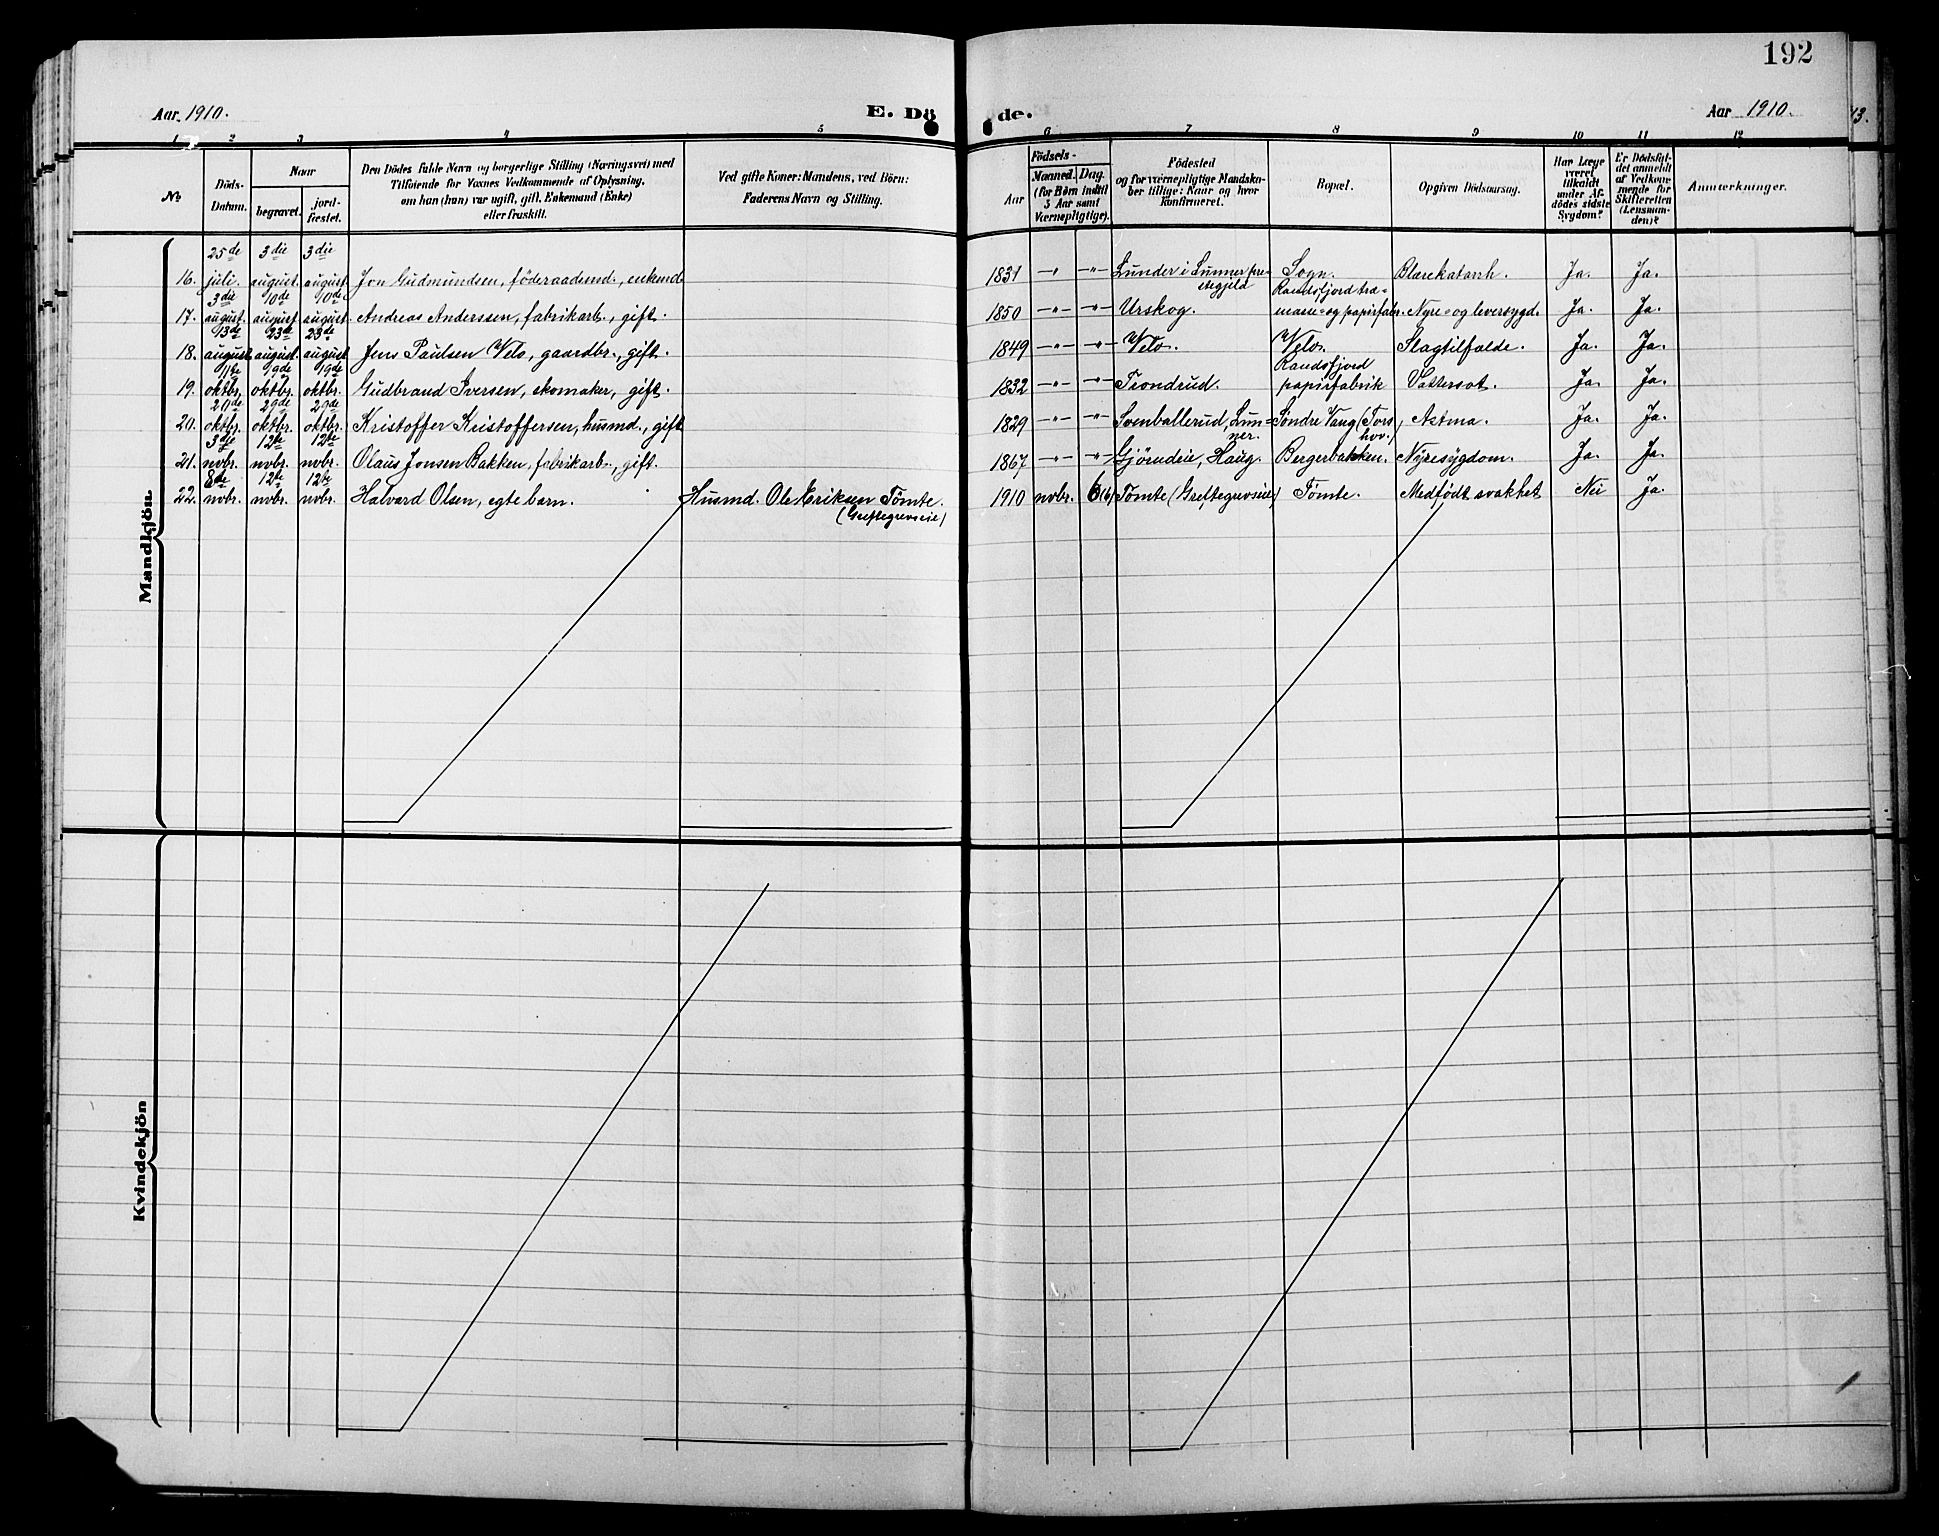 192
Aar 1910.
E. Döde.
Aar 1910.
13.
1 2 3 4 5 6 7 8 9 10 11 12
No
Döds-Datum.
Naar
begravet.
jord-fæstet.
Den Dödes fulde Navn og borgerlige Stilling (Næringsvei) med
Tilföiende for Voxnes Vedkommende af Oplysning,
om han (hun) var ugift, gift, Enkemand (Enke)
eller fraskilt.
Ved gifte Koner: Mandens, ved Börn:
Faderens Navn og Stilling.
Födsels-
Aar
Maaned. Dag.
(for Börn indtil
3 Aar samt
Værnepligtige).
Födested
og for værnepligtige Mandska-
ber tillige: Naar og hvor
konfirmeret.
Bopæl.
Opgiven Dödsaarsag.
Har Læge
været
tilkaldt
under Af-
dödes sidste
Sygdom?
Er Dödsfal-
det anmeldt
af Vedkom-
mende for
Skifteretten
(Lensman-
den)?
Anmærkninger.
Mandkjön
16. 25de juli. 3die august. 3die august. Jon Gudmundsen, föderaadsmd., enkemd. 1831 -"- -"- Lunder i Lunner præstegjeld Sogn. Blærekatarrh. Ja. Ja.
17. 3die august. 10de august. 10de august. Andreas Anderssen, fabrikarb., gift. 1850 -"- -"- Urskog. Randsfjord træ-masse- og papirfabr. Nyre- og leversygd. Ja. Ja.
18. 13de august 23de august. 23de august Jens Paulsen Velo, gaardbr., gift. 1849 -"- -"- Velo. Velo. Slagtilfælde. Ja. Ja.
19. 11te oktbr. 19de oktbr. 19de oktbr. Gudbrand Iversen, skomaker, gift. 1832 -"- -"- Trondrud. Randsfjord papirfabrik Vattersot. Ja. Ja.
20. 20de oktbr. 29de oktbr. 29de oktbr. Kristoffer Kristoffersen, husmd., gift 1829 -"- -"- Somballerud, Lunner. Söndre Vang (Torshov.) Astma. Ja. Ja.
21. 3die novbr. 12te novbr. 12te novbr. Olaus Jonsen Bakken, fabrikarb., gift. 1867 -"- -"- Gjörndeie, Haug. Bergerbakken. Nyresygdom. Ja. Ja.
22. 8de novbr. 12te novbr. 12te novbr. Halvard Olsen, egte barn. Husmd. Ole Eriksen Tömte. (Greftegrevseie) 1910 novbr. 6 (6) Tömte (Greftegrevseie) Tömte. Medfödt svakhet Nei Ja.
Kvindekjön